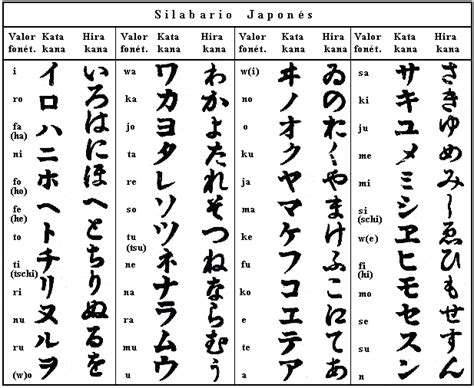 Silabario Japonés
Valor fonét. Kata kana Hira kana Valor fonét. Kata kana Hira kana Valor fonét. Kata kana Hira kana Valor fonét. Kata kana Hira kana
i イ い wa ワ わ w(i) ヰ ゐ sa サ さ
ro ロ ろ ka カ か no ノ の ki キ き
fa (ha) ハ は jo ヨ よ o オ お ju ユ ゆ
ni ニ に ta タ た ku ク く me メ め
fo (ho) ホ ほ re レ れ ja ヤ や mi ミ み
fe (he) ヘ へ so ソ そ ma マ ま si (schi) シ し
to ト と tu (tsu) ツ つ ke ケ け w(e) ヱ ゑ
ti (tschi) チ ち ne ネ ね fu フ ふ fi (hi) ヒ ひ
ri リ り na ナ な ko コ こ mo モ も
nu ヌ ぬ ra ラ ら e エ se セ せ
ru ル る mu ム む te テ て su ス す
(w)o ヲ を u ウ う a ア あ n ン ん